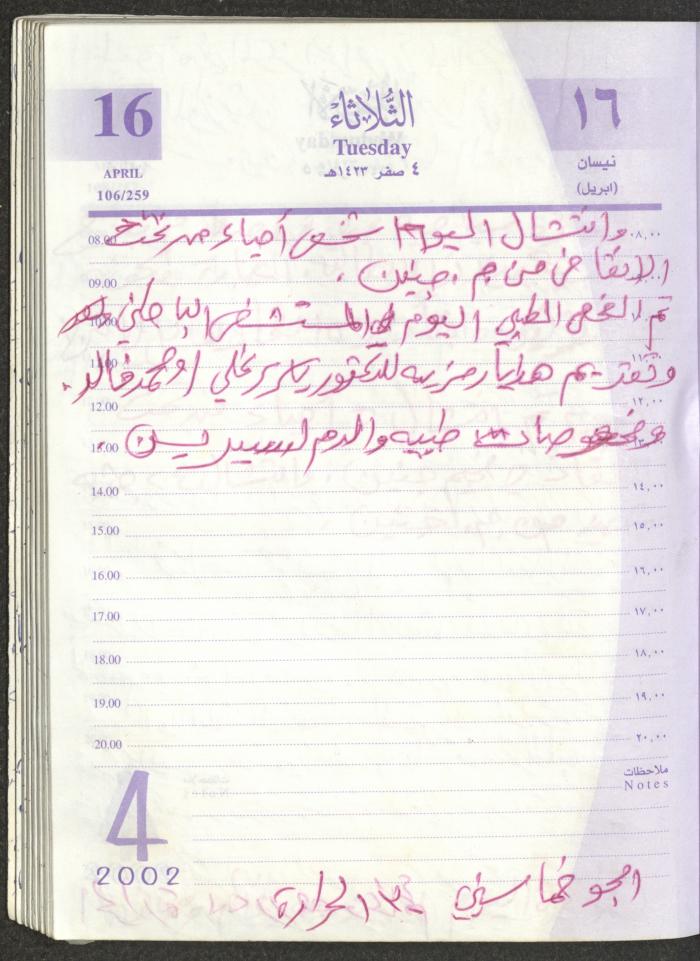 16
APRIL
106/259
الثلاثاء
Tuesday
٤ صفر ١٤٢٣هـ
١٦
نيسان
(ابريل)
08.00 ٠٨,٠٠
وانتشال اليوم شخص أحياء من تحت
09.00
الانقاض من م. جنين.
10.00
تم الفحص الطبي اليوم في المستشفى الباطني
11.00
وتقديم هدايا رمزيه للدكتور علي
12.00 ١٢,٠٠
13.00
طبيه والدم
14.00 ١٤,٠٠
15.00 ١٥,٠٠
16.00 ١٦,٠٠
17.00 ١٧,٠٠
18.00 ١٨,٠٠
19.00 ١٩,٠٠
20.00 ٢٠,٠٠
ملاحظات
Notes
4
2002
الجو خماسيني ٣٠ الحرارة